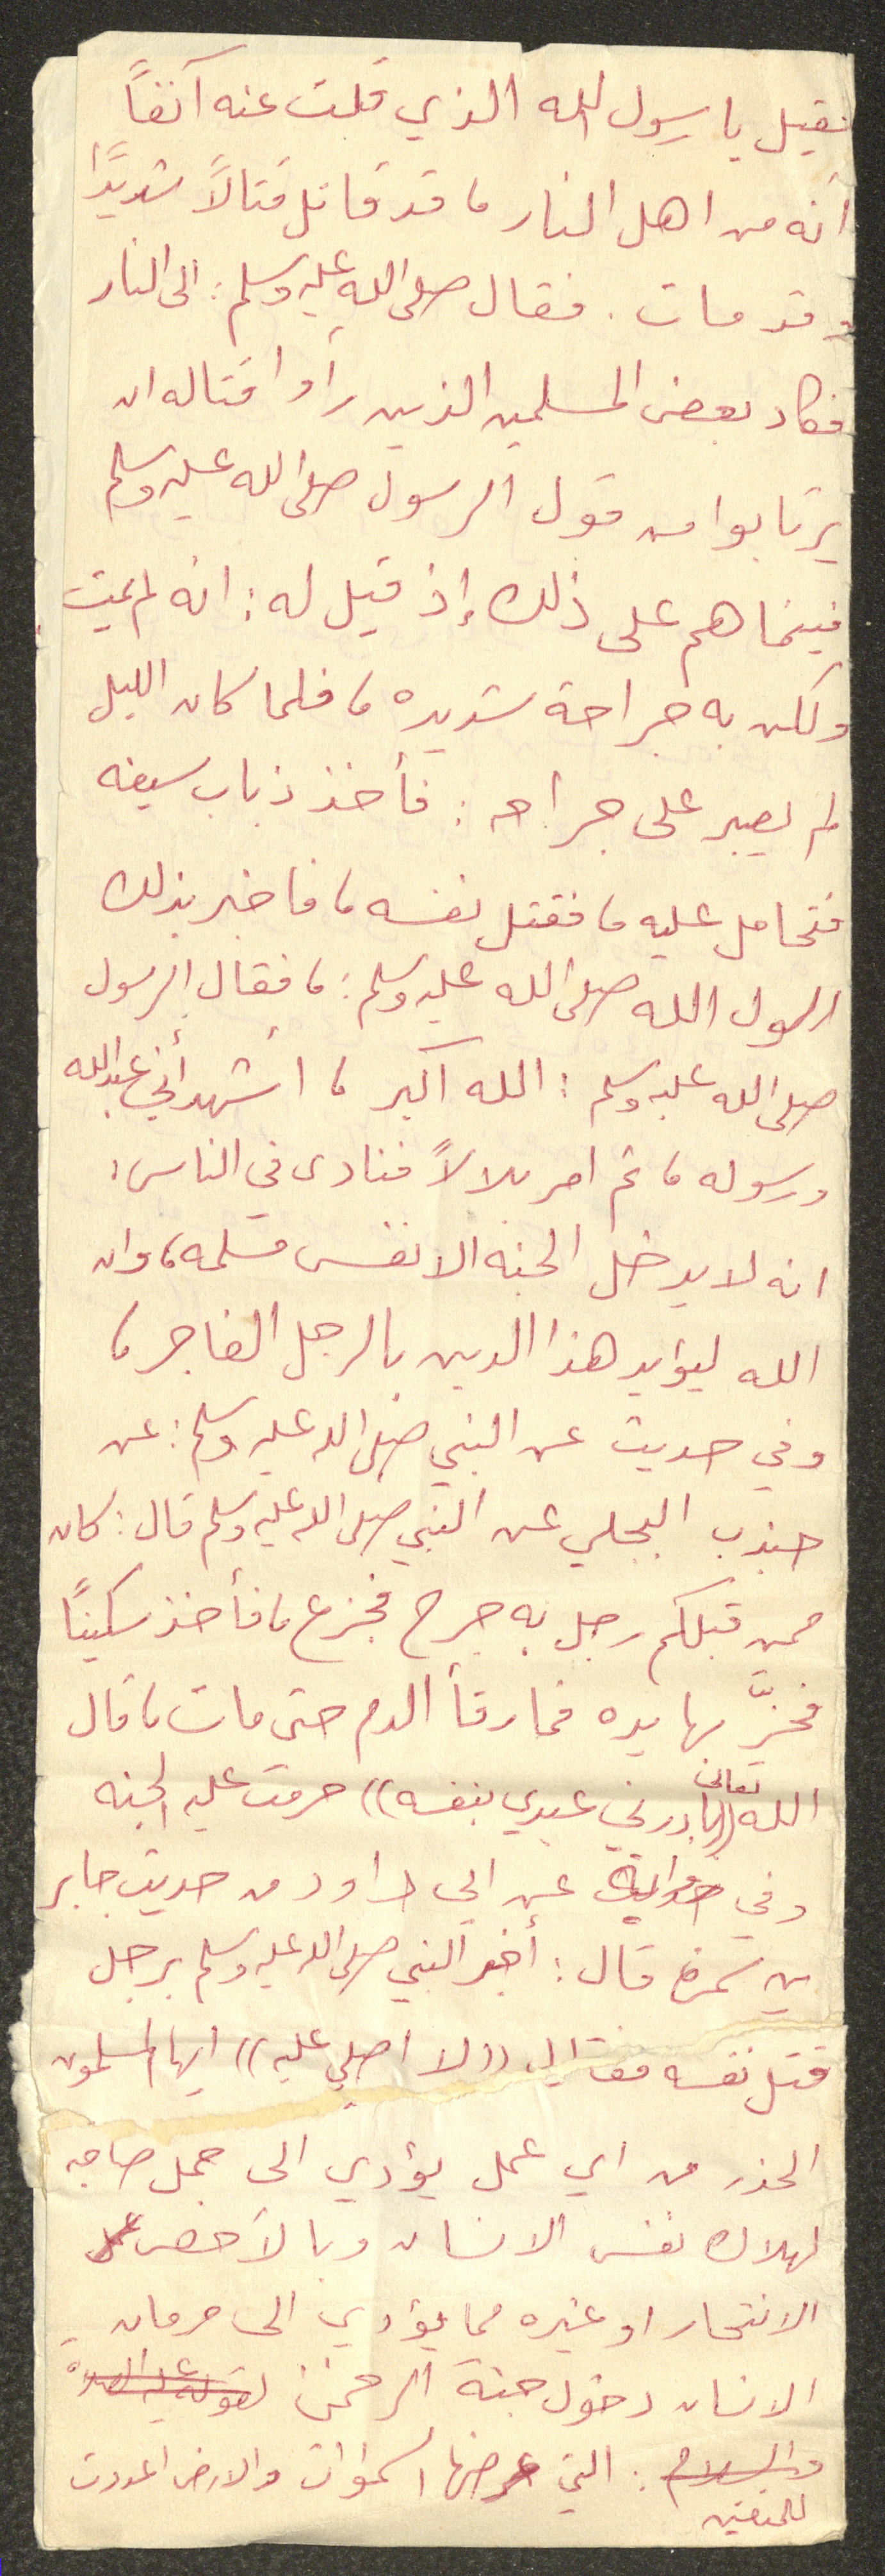 فقيل يا رسول الله الذي قلت عنه آنفاً
أنه من اهل النار ، قد قاتل قتالاً شديداً
وقد مات . فقال صلى الله عليه وسلم : الى النار
فكاد بعض المسلمين الذين رأوا قتاله ان
يرتابوا من قول الرسول صلى الله عليه وسلم
فبينما هم على ذلك إذ قيل له : انه لم يمت
ولكن به جراحة شديده ، فلما كان الليل
لم يصبر على جراحه : فأخذ ذباب سيفه
فتحامل عليه ، فقتل نفسه ، فاخبر بذلك
رسول الله صلى الله عليه وسلم : ، فقال الرسول
صلى الله عليه وسلم : الله اكبر ، اشهد أني عبد الله
ورسوله ، ثم امر بلالاً فنادى في الناس :
انه لا يدخل الجنه الا نفس مسلمه ، وان
الله ليؤيد هذا الدين بالرجل الفاجر ،
وفي حديث عن النبي صلى الله عليه وسلم : عن
جندب البجلي عن النبي صلى الله عليه وسلم قال : كان
ممن قبلكم رجل به جرح فجزع ، فأخذ سكيناً
فحزّ بها يده فما رقأ الدم حتى مات ، قال
الله تعالى ((بادرني عبدي بنفسه)) حرمت عليه الجنه
وفي رواية عن ابي داود من حديث جابر
بن سمرة قال : أخبر النبي صلى الله عليه وسلم برجل
قتل نفسه فقال ((لا اصلي عليه)) ايها المسلمون
الحذر من اي عمل يؤدي الى حمل صاحبه
لهلاك نفس الانسان وبالأخص
الانتحار او غيره مما يؤدي الى حرمان
الانسان دخول جنة الرحمن لقوله عليه الصلاة
والسلام : التي عرضها السموات والارض اعدت
للمتقين